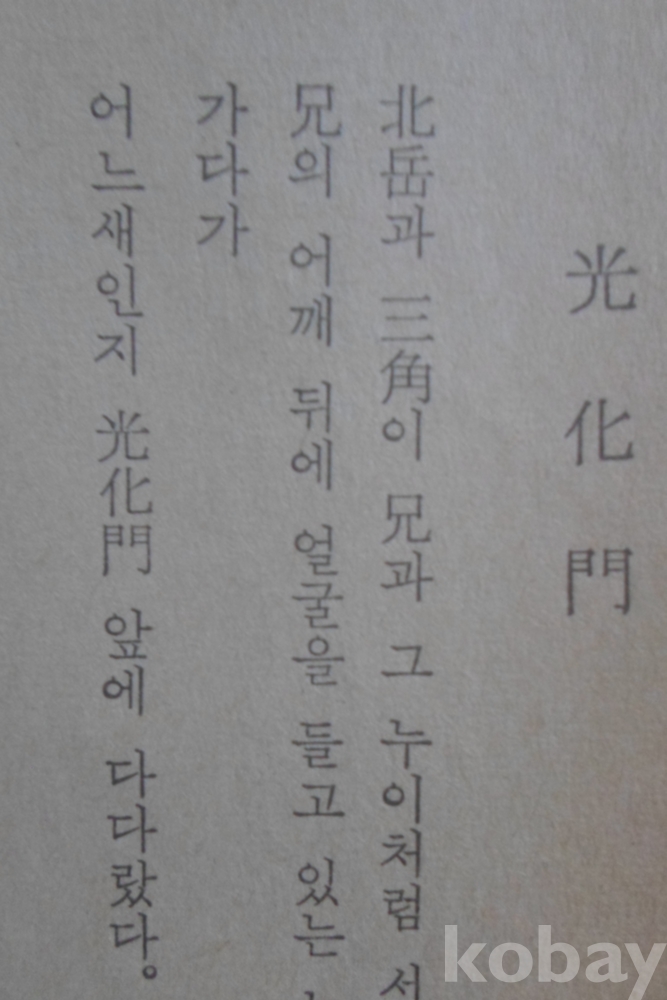 光化門
北岳과 三角이 兄과 그 누이처럼
兄의 어깨 뒤에 얼굴을 들고 있는
가다가
어느새인지 光化門 앞에 다다랐다。
kobay